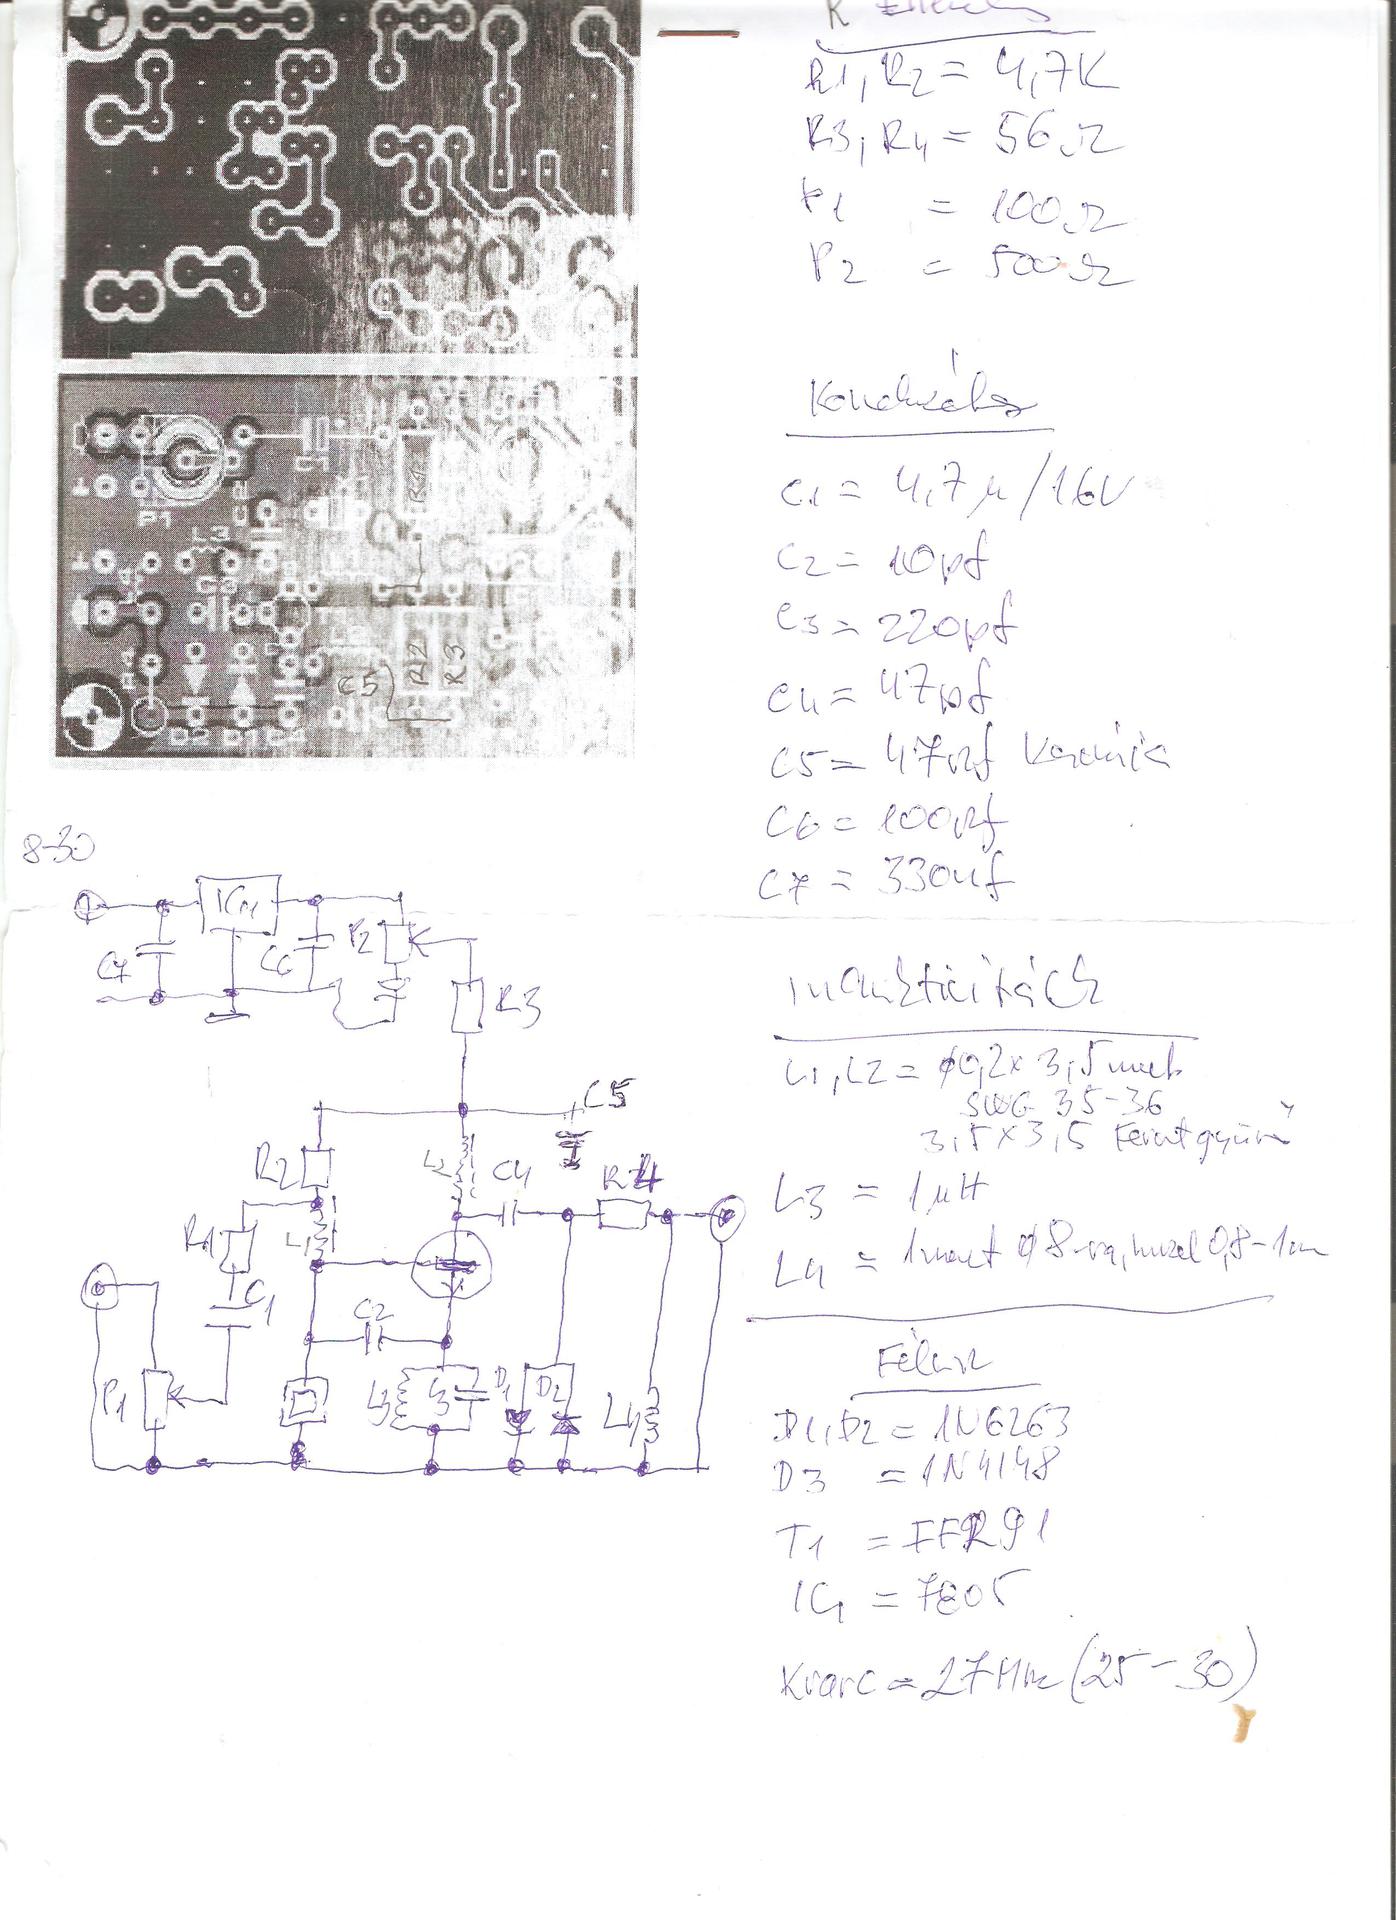 R1, R2 = 4,7K
R3, R4 = 56Ω
P1 = 100Ω
P2 = 500Ω
C1 = 4,7µ/16V
C2 = 10pf
C3 = 220pf
C4 = 47pf
C5 = 47nf
C6 = 100nf
C7 = 330nf
L1, L2 = φ0,2x 3,5
SWG 35-36
3,5x3,5
L3 = 1µH
L4 = 1 φ8 0,8-1
D1, D2 = 1N6263
D3 = 1N4148
T1 = 91
IC1 = 7805
Kvarc = 27 (25-30)
P1
C1
R4
L3
C3
L2
C5
R2
R3
D2
D1
C4
8-30
IC1
C7
C6
P2
R3
C5
R2
L2
C4
R4
R1
L1
C1
C2
P1
L3
D1
D2
L4